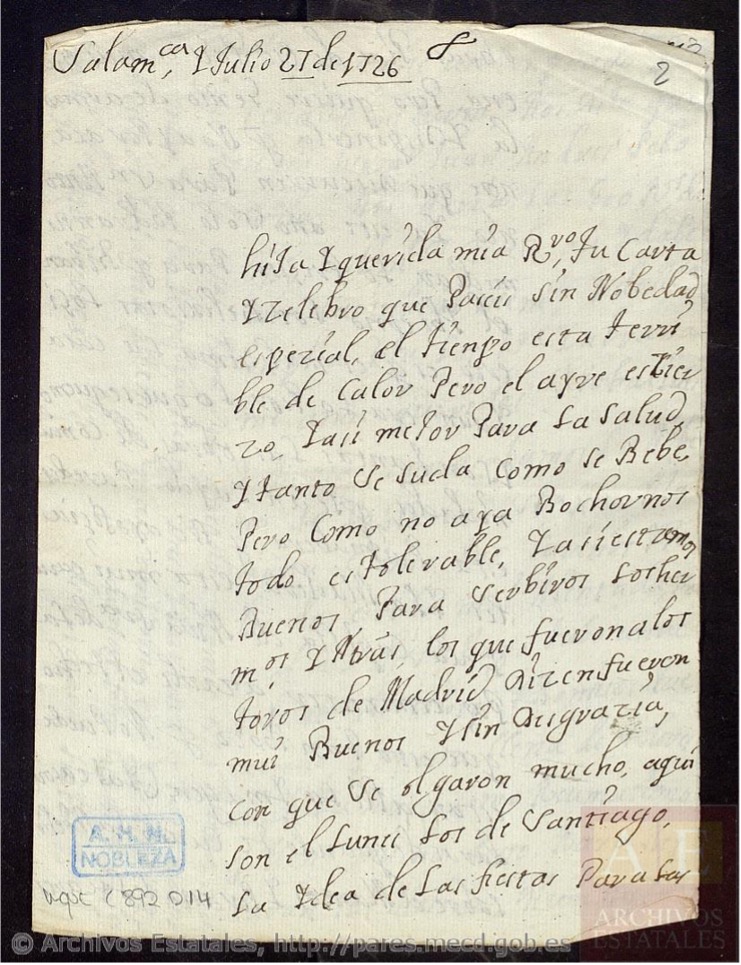 Salam.ca, Y Julio 27 de 1726
2
hija Y querida mia Rvo, tu Carta
Y zelebro que Paseis sin Nobedad
espezial, el tienpo esta terri
ble de Calor Pero el ayre es Zier
zo, Y asi mejor Para La Salud,
Y tanto se suda Como se Bebe,
Pero Como no aya Bochornos
todo es tolerable, Y asi estamos
Buenos, Para serbiros Los her
mos Y Ntras, los que fueron a los
toros de Madrid Dizen fueron
mui Buenos Y sin Desgrazia,
Con que se olgaron mucho, aqui
son el Lunes Los de Santiago,
La Ydea de Las fiestas Para Las
A. H. N.
NOBLEZA
C 892 D 14
AE
ARCHIVOS
ESTATALES
© Archivos Estatales, http://pares.mecd.gob.es